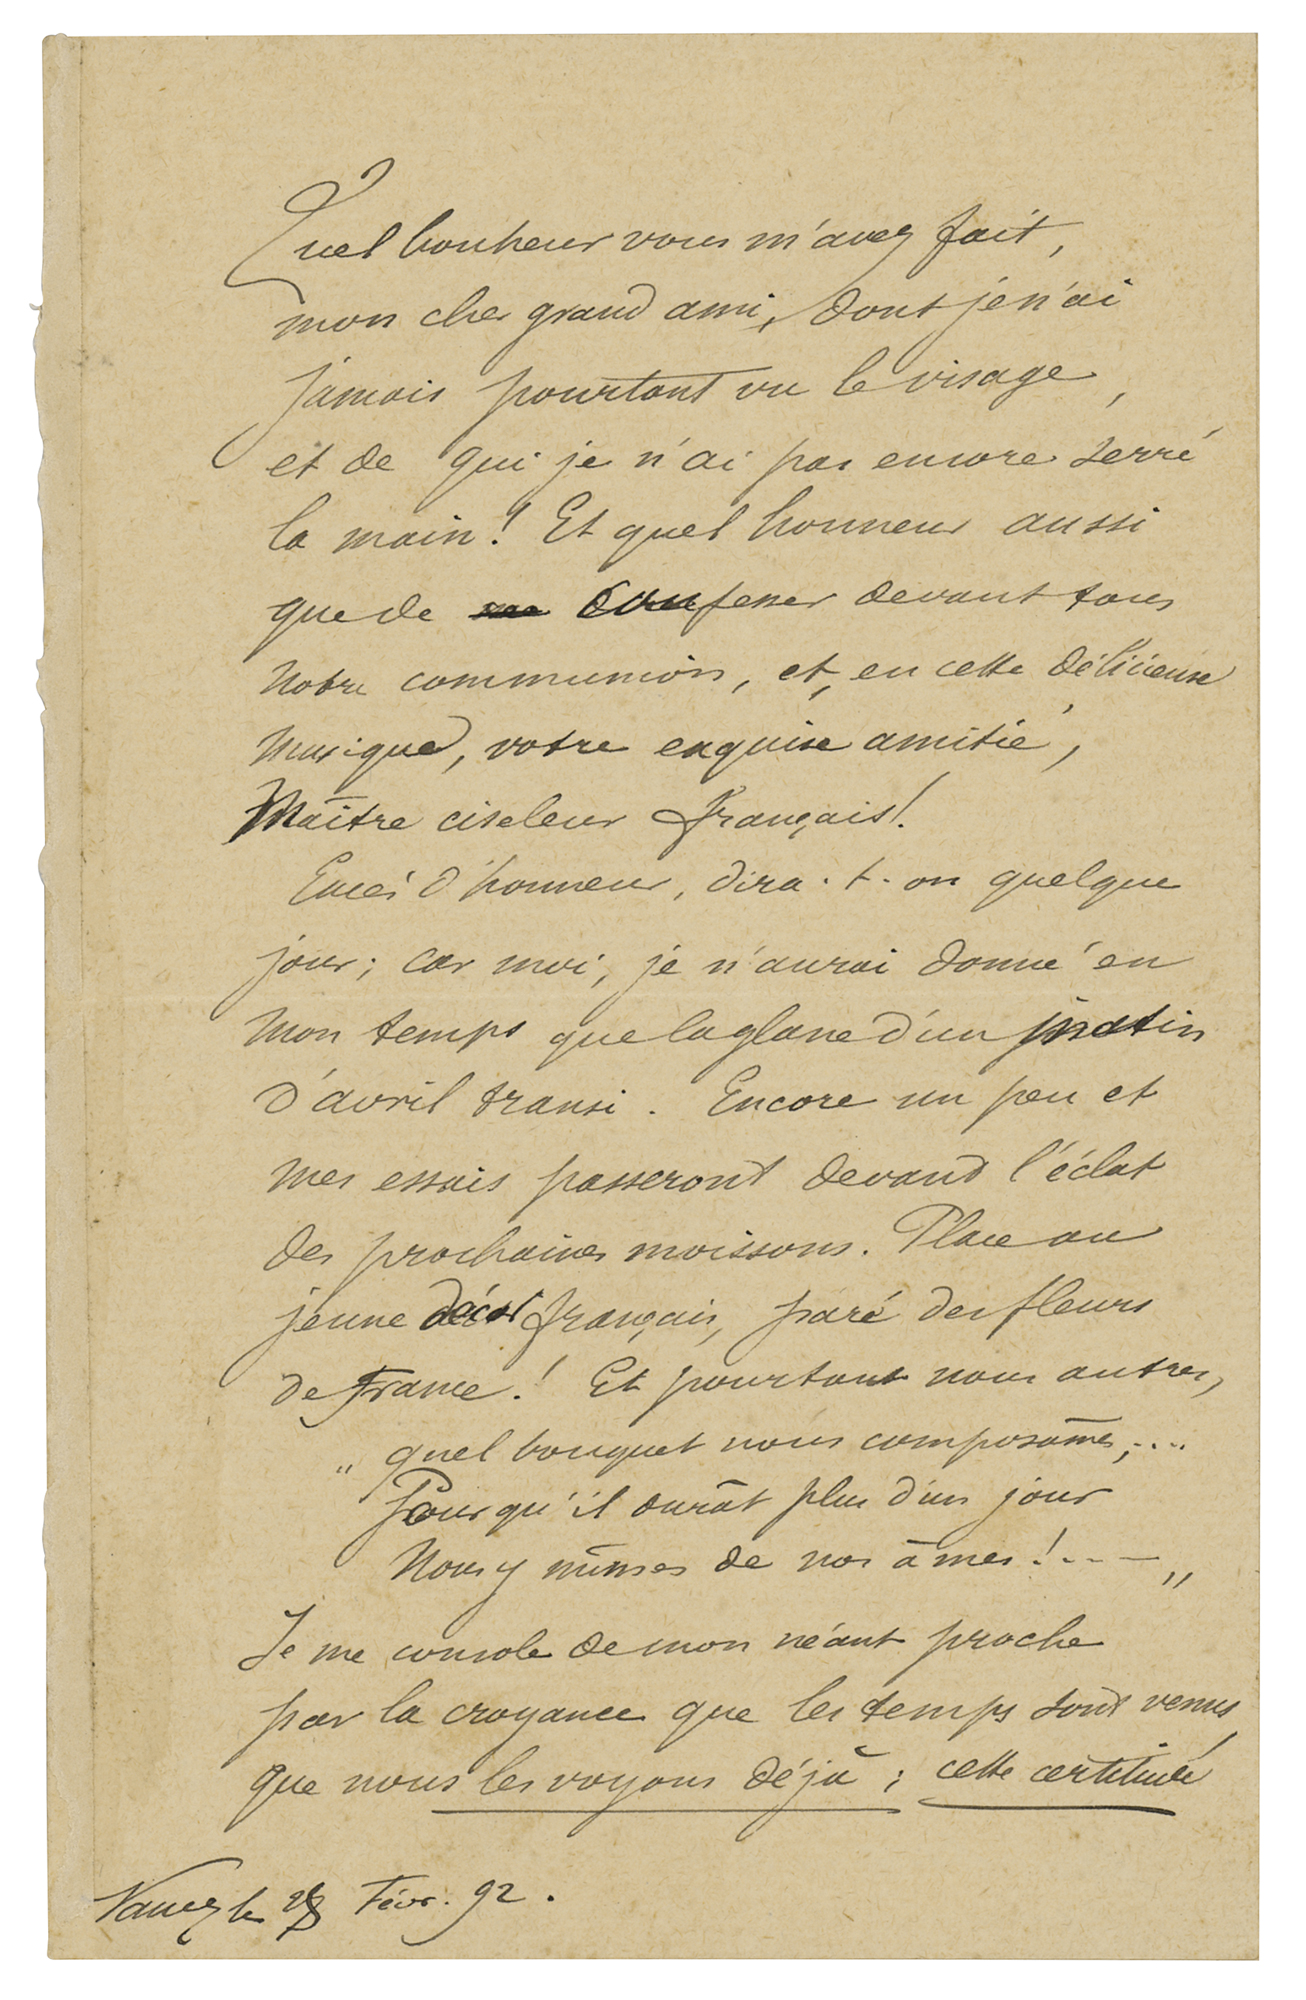 Quel bonheur vous m'avez fait,
mon cher grand ami, dont je n'ai
jamais pourtant vu le visage,
et de qui je n'ai pas encore serré
la main! Et quel honneur aussi
que de confesser devant tous
notre communion, et, en cette délicieuse
musique, votre exquise amitié,
Maître ciseleur français!
Excès d'honneur, dira-t-on quelque
jour; car moi, je n'aurai donné en
mon temps que la glane d'un matin
d'avril transi. Encore un peu et
mes essais passeront devant l'éclat
des prochaines moissons. Place au
jeune décor français, paré des fleurs
de France! Et pourtant nous autres,
„ quel bouquet nous composâmes,....
Pour qu'il durât plus d'un jour
Nous y mîmes de nos âmes!.... „
Je me console de mon néant proche
par la croyance que les temps sont venus,
que nous les voyons déjà; cette certitude
Nancy le Févr. 92.